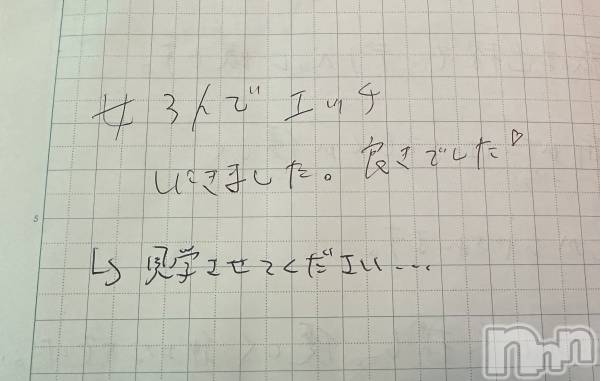 女3人でエッチ
いきました。良きでした♡
↳見学させてください…
5
nnn